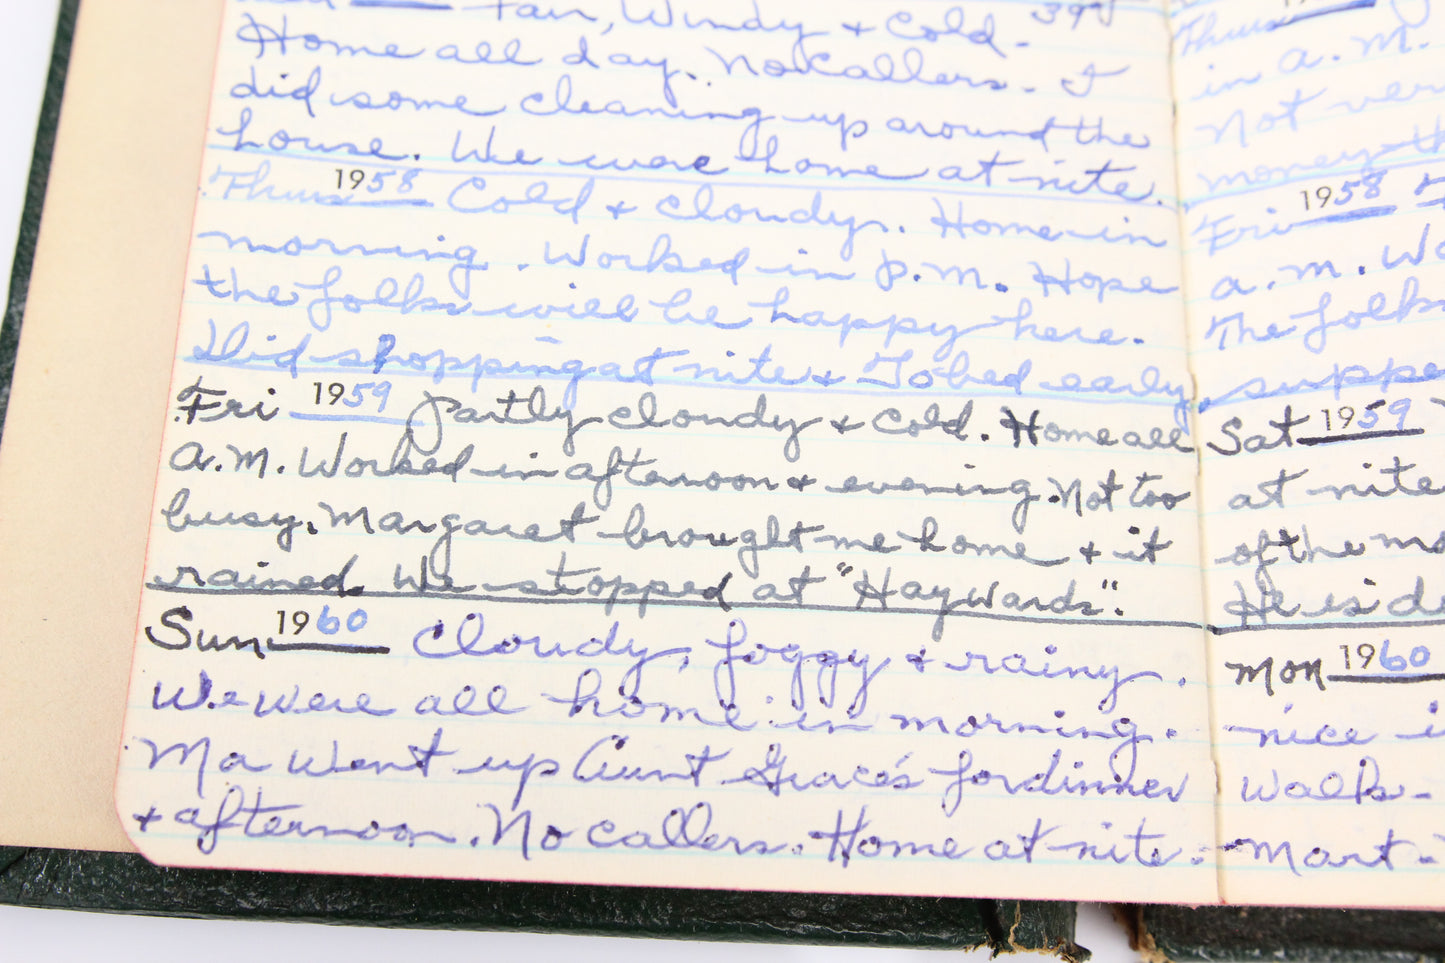 Fair, Windy + Cold. 39°
Home all day. No callers. I
did some cleaning up around the
house. We were home at nite.
Thurs 1958 Cold + cloudy. Home in
morning. Worked in P.M. Hope
the folks will be happy here.
Did shopping at nite + To bed early.
Fri 1959 Partly cloudy + cold. Home all
A.M. Worked in afternoon + evening. Not too
busy. Margaret brought me home + it
rained. We stopped at "Haywards".
Sun 1960 Cloudy, foggy + rainy.
We were all home in morning.
Ma went up Aunt Grace's for dinner
+ afternoon. No callers. Home at nite.
Thurs
in a.m.
Not
money
Fri 1958
a.m.
The folks
Sat 1959
at nite
of the
He is
Mon 1960
nice
walks-
Mart-